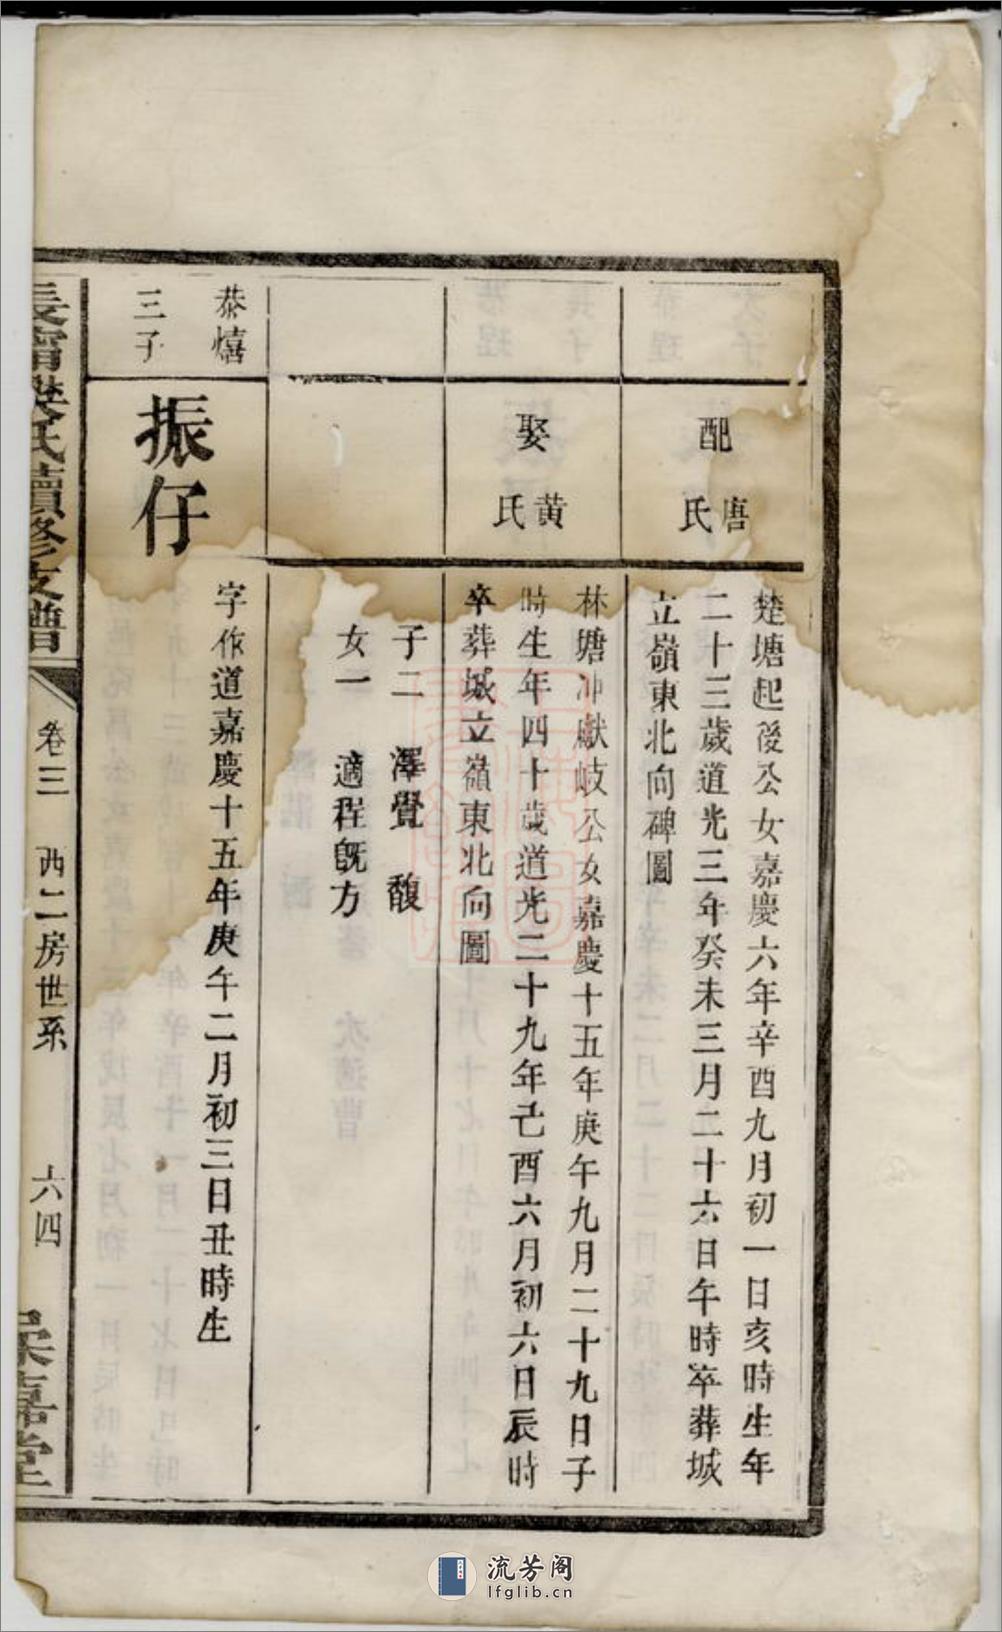 配
唐氏
楚塘起後公女嘉慶六年辛酉九月初一日亥時生年
二十三歲道光三年癸未三月二十六日午時卒葬城
立嶺東北向碑圖
娶
黃氏
林塘冲獻岐公女嘉慶十五年庚午九月二十九日子
時生年四十歲道光二十九年己酉六月初六日辰時
卒葬城立嶺東北向圖
子二　澤覺　馥
女一　適程旣方
恭熺
三子
振仔
字作道嘉慶十五年庚午二月初三日丑時生
氏續修支譜
卷三　西二房世系　六四
嘉堂
流芳阁
lfglib.cn